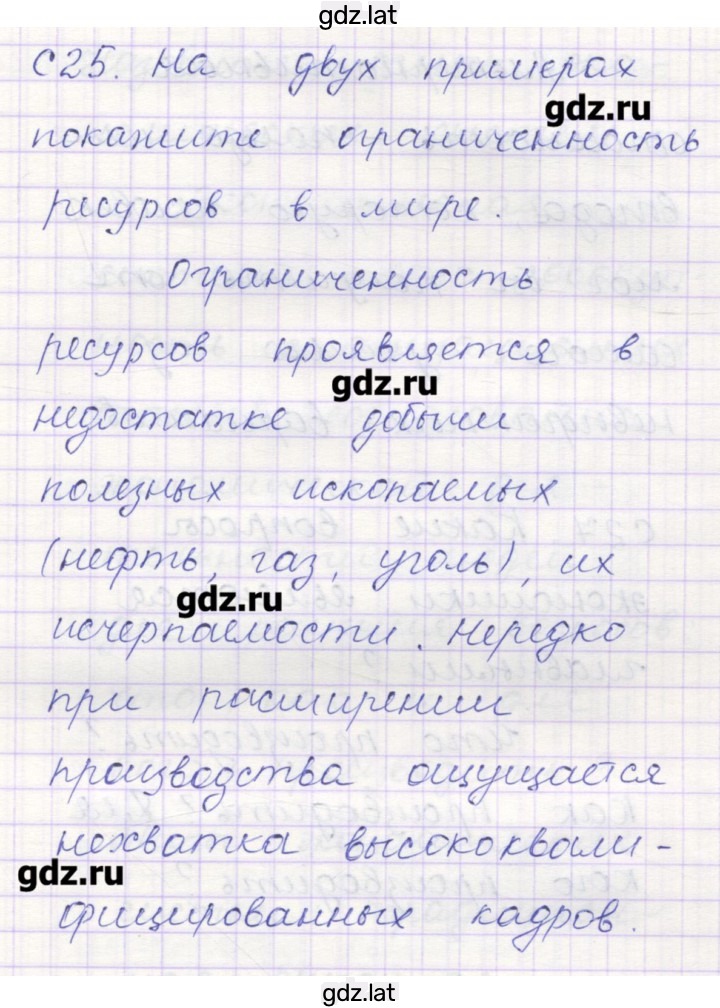 gdz.lat
С 25. На двух примерах
gdz.ru
покажите ограниченность
ресурсов в мире.
Ограниченность
ресурсов проявляется в
gdz.ru
недостатке добычи
полезных ископаемых
(нефть, газ, уголь), их
gdz.ru
исчерпаемости. Нередко
при расширении
производства ощущается
нехватка высококвали-
gdz.ru
фицированных кадров.
gdz.lat